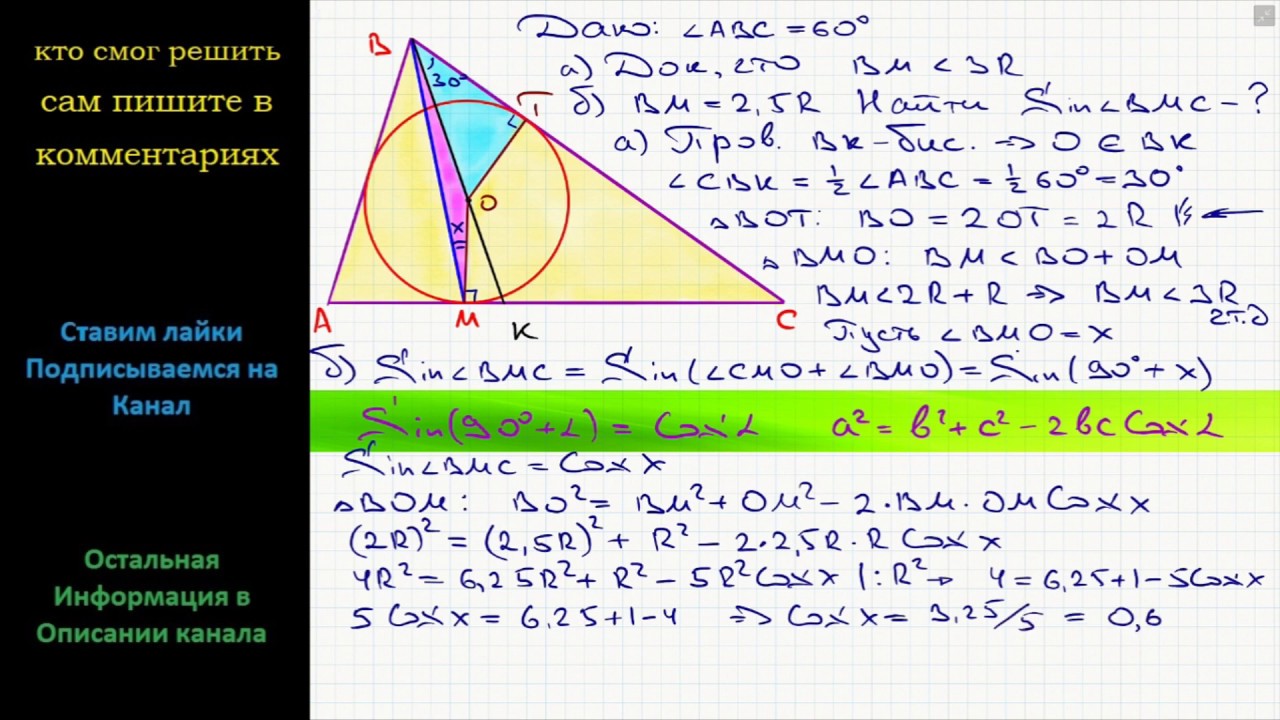 кто смог решить
сам пишите в
комментариях
Ставим лайки
Подписываемся на
Канал
Остальная
Информация в
Описании канала
B
30°
T
O
x
A
M
K
C
Дано: ∠ABC = 60°
а) Док, что BM < 3R
б) BM = 2,5R Найти Sin∠BMC - ?
а) Пров. BK-бис. ⇒ O ∈ BK
∠CBK = ½ ∠ABC = ½ 60° = 30°
△BOT: BO = 2OT = 2R
△BMO: BM < BO + OM
BM < 2R + R ⇒ BM < 3R
ч.т.д
Пусть ∠BMO = x
б) Sin∠BMC = Sin(∠CMO + ∠BMO) = Sin(90° + x)
Sin(90° + α) = Cos α a² = b² + c² - 2bc Cos α
Sin∠BMC = Cos x
△BOM: BO² = BM² + OM² - 2·BM·OM Cos x
(2R)² = (2,5R)² + R² - 2·2,5R·R Cos x
4R² = 6,25R² + R² - 5R² Cos x |:R² ⇒ 4 = 6,25 + 1 - 5Cos x
5 Cos x = 6,25 + 1 - 4 ⇒ Cos x = 3,25/5 = 0,6